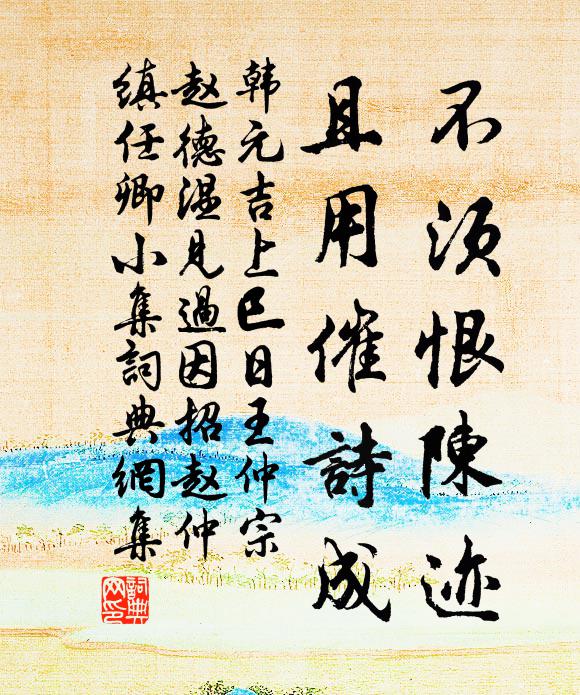 不须恨陳迹
且用催詩成
韩元吉上巳日王仲宗
赵德温見過因招赵仲
縝任卿小集詞典網集